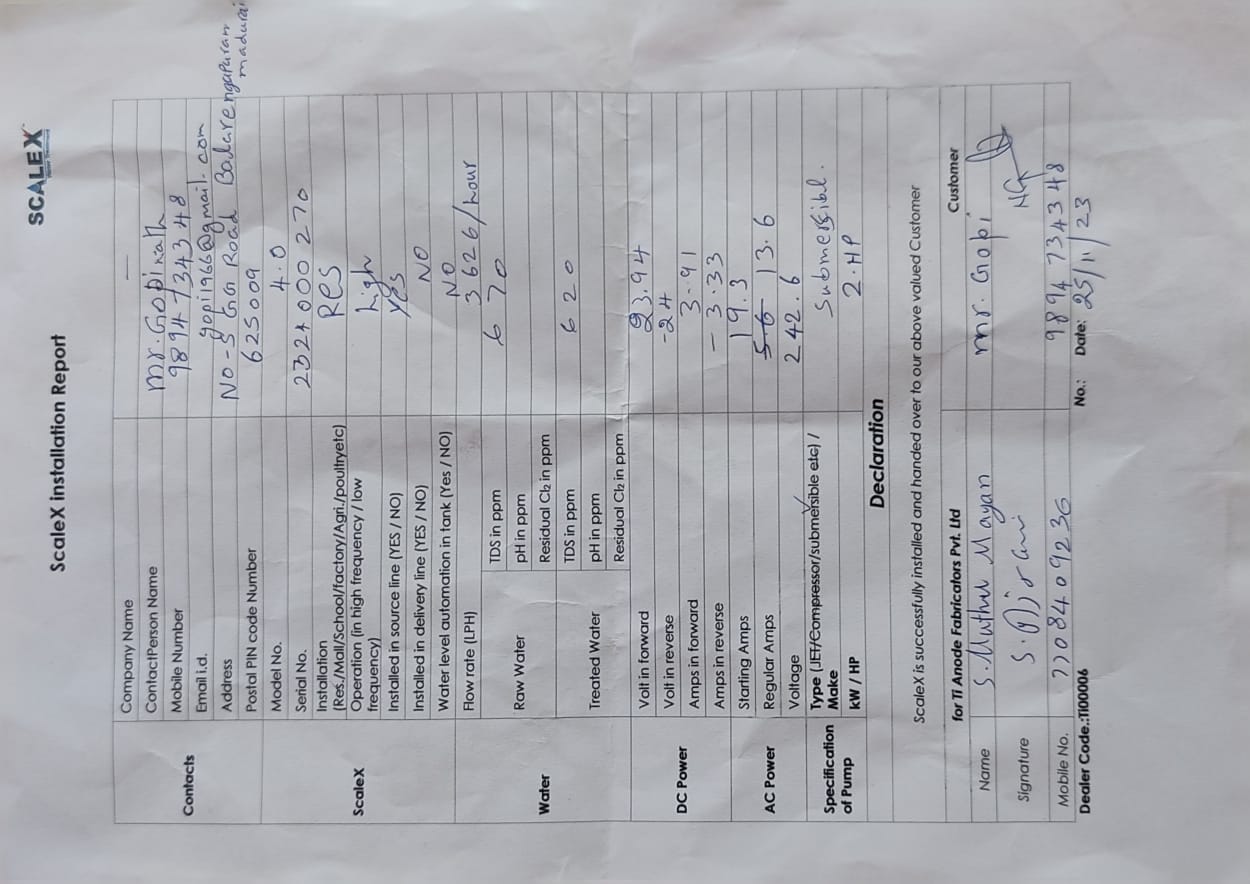 SCALEX
ScaleX installation Report
Contacts
Company Name —
ContactPerson Name Mr. Gopinath
Mobile Number 9894734348
Email i.d. gopi1966@gmail.com
Address NO-5 Road Balarengapuram
madurai
Postal PIN code Number 625009
ScaleX
Model No. 4.0
Serial No. 2324000270
Installation RES
(Res./Mall/School/factory/Agri./poultryetc)
Operation (in high frequency / low high
frequency)
Installed in source line (YES / NO) Yes
Installed in delivery line (YES / NO) NO
Water level automation in tank (Yes / NO) NO
Water
Flow rate (LPH) 3626/hour
Raw Water
TDS in ppm 670
pH in ppm
Residual Cl2 in ppm
Treated Water
TDS in ppm 620
pH in ppm
Residual Cl2 in ppm
DC Power
Volt in forward 23.94
Volt in reverse -24
Amps in forward 3.91
Amps in reverse -3.33
AC Power
Starting Amps 19.3
Regular Amps 5.6 13.6
Voltage 242.6
Specification
of Pump
Type (JET/Compressor/submersible etc) / Submersibul.
Make
kW / HP 2.HP
Declaration
ScaleX is successfully installed and handed over to our above valued Customer
for TI Anode Fabricators Pvt. Ltd Customer
Name S. Muthu Mayan mr. Gopi
Signature
Mobile No. 7708409236 9894734348
Dealer Code.:TI00006 No.: Date: 25/11/23